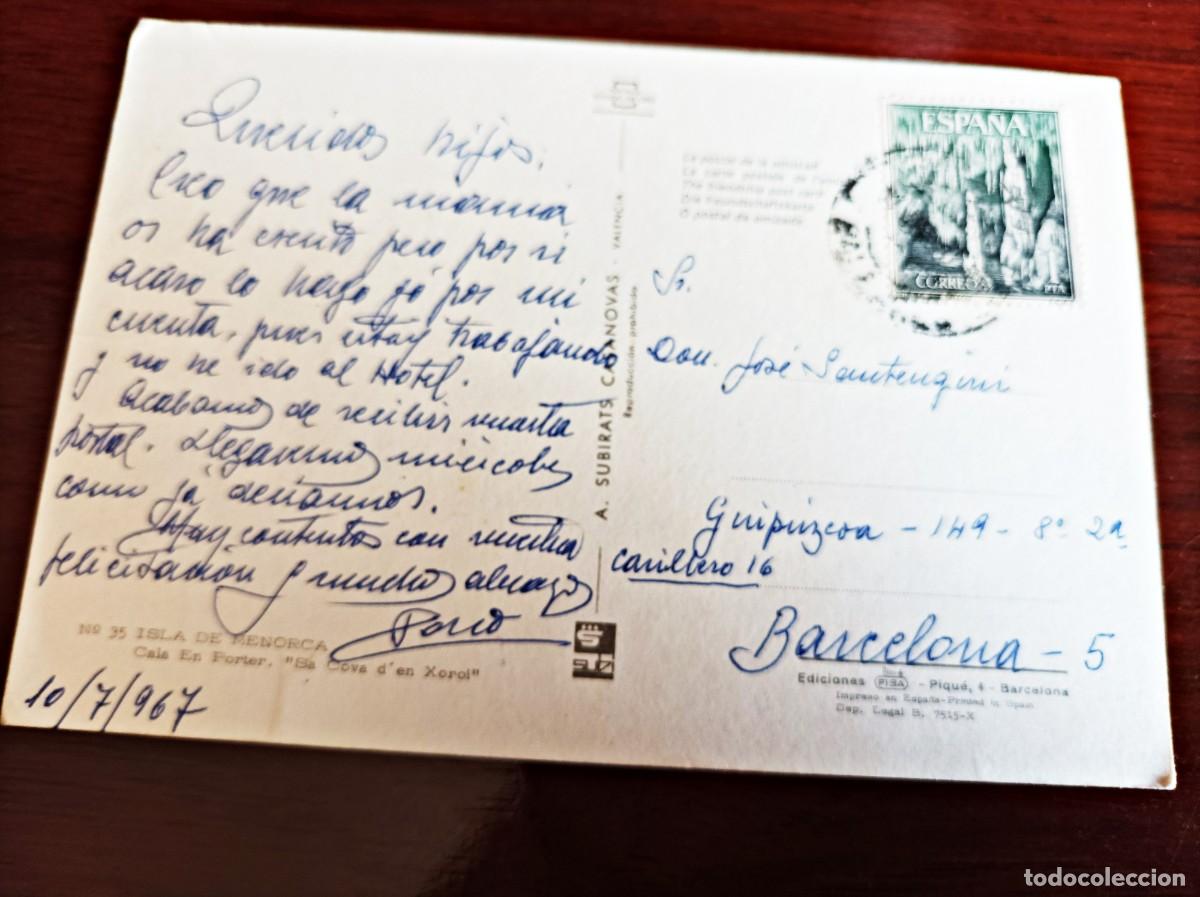 Queridos hijos,
Creo que la mamá
os ha escrito pero por si
acaso lo hago yó por mi
cuenta, pues estoy trabajando
y no he ido al Hotel.
Acabamos de recibir vuestra
postal. Llegaremos miercoles
como ya deciamos.
Muy contentos con vuestra
felicitación y muchos abrazos
Nº 35 ISLA DE MENORCA
Cala En Porter. "Sa Cova d'en Xoroi"
10/7/967
A. SUBIRATS CASANOVAS - VALENCIA
Reproducción prohibida
La postal de la amistad
La carte postale de
The friendship post card
Die Freundschaftskarte
O postal da amizade
ESPAÑA
CORREOS
PTA
Sr.
Don. José
Guipúzcoa - 149 - 8º 2ª
16
Barcelona - 5
Ediciones PISA - Piqué, 4 - Barcelona
Impreso en España-Printed in Spain
Dep. Legal B. 7515-X
todocoleccion